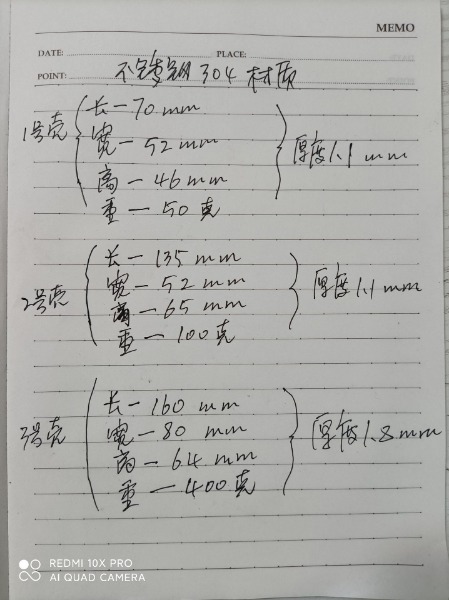 MEMO
DATE: PLACE:
POINT: 不锈钢304材质
1号壳
长-70mm
宽-52mm
高-46mm
重-50克
厚度1.1mm
2号壳
长-135mm
宽-52mm
高-65mm
重-100克
厚度1.1mm
3号壳
长-160mm
宽-80mm
高-64mm
重-400克
厚度1.8mm
REDMI 10X PRO
AI QUAD CAMERA